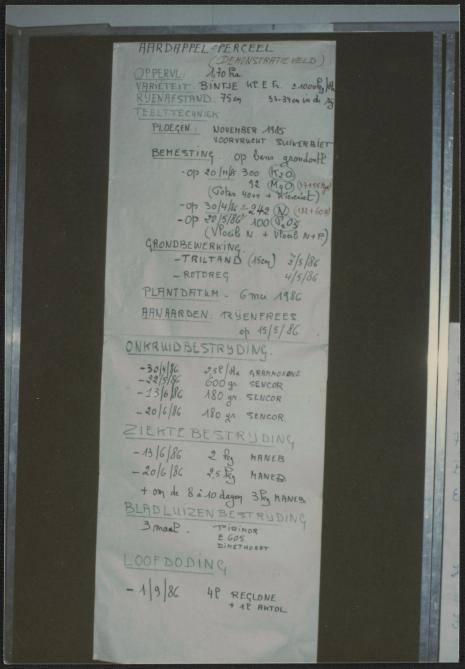 AARDAPPEL-PERCEEL
(DEMONSTRATIEVELD)
OPPERVL: 1,70 ha
VARIËTEIT: BINTJE KL.E
RIJENAFSTAND: 75cm 33-34cm in de rij
TEELTTECHNIEK
PLOEGEN: NOVEMBER 1985
VOORVRUCHT SUIKERBIET
BEMESTING: op basis grondontl
-op 20/11/85 300 (K2O)
92 (MgO)
(Potas 40% + Kieseriet)
-op 30/4/86 242 (N)
-op 20/5/86 100 (P2O5)
(Vloeib N + Vloeib N+P)
GRONDBEWERKING
-TRILTAND (15cm) 3/5/86
-ROTOREG 4/5/86
PLANTDATUM - 6 mei 1986
AANAARDEN: RIJENFREES
op 15/5/86.
ONKRUIDBESTRIJDING.
-30/4/86 2,5l/Ha GRAMMOXONE
-22/5/86 600 gr. SENCOR
-13/6/86 180 gr. SENCOR
-20/6/86 180 gr. SENCOR.
ZIEKTEBESTRIJDING
-13/6/86 2 kg MANEB
-20/6/86 2,5 kg MANEB
+ om de 8 à 10 dagen 3kg MANEB
BLADLUIZENBESTRIJDING
3 maal. PIRIMOR
E 605
DIMETHOAAT
LOOFDODING
- 1/9/86 4l REGLONE
+ 1l AKTOL